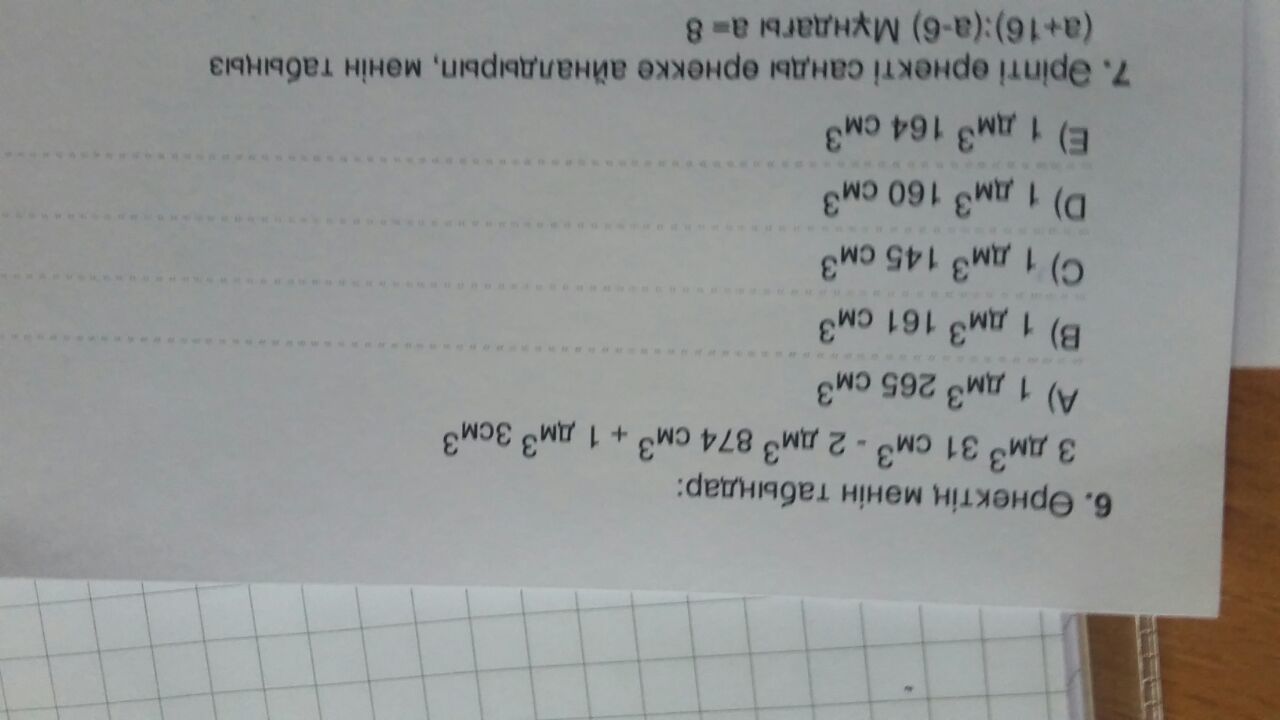 6. Өрнектің мәнін табыңдар:
3 дм³ 31 см³ - 2 дм³ 874 см³ + 1 дм³ 3см³
A) 1 дм³ 265 см³
B) 1 дм³ 161 см³
C) 1 дм³ 145 см³
D) 1 дм³ 160 см³
E) 1 дм³ 164 см³
7. Әріпті өрнекті санды өрнекке айналдырып, мәнін табыңыз
(a+16):(a-6) Мұндағы a= 8